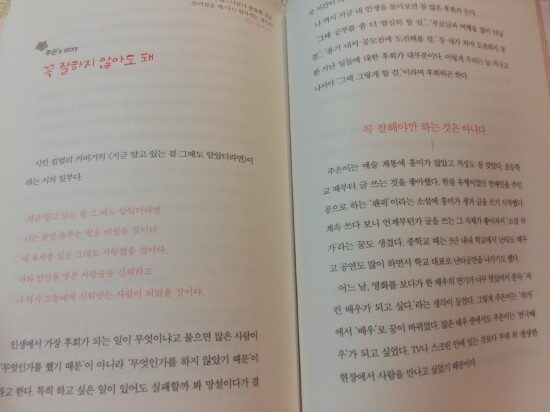 주은's story
꼭 잘하지 않아도 돼
시인 킴벌리 커버거의 〈지금 알고 있는 걸 그때도 알았더라면〉이
라는 시의 일부다.
지금 알고 있는 걸 그 때도 알았더라면
나는 분명 춤추는 법을 배웠을 것이다.
내 육체를 있는 그대로 사랑했을 것이다.
나와 인연을 맺은 사람들을 신뢰하고
나 역시 그들에게 신뢰받는 사람이 되었을 것이다.
인생에서 가장 후회가 되는 일이 무엇이냐고 물으면 많은 사람이
'무엇인가를 했기 때문'이 아니라 '무엇인가를 하지 않았기 때문'이
라고 한다. 특히 하고 싶은 일이 있어도 실패할까 봐 망설이다가 결
나 역시 지금 내 인생을 돌아보면 참 많은 후회가 된다.
'그때 공부를 좀 더 열심히 할 걸.', '부모님과 여행을 많이 다닐
걸.', '용기 내서 공모전에 도전해볼 걸.' 등 내가 차마 도전하지 못
한 지난 일들에 대한 후회가 대부분이다. 이렇게 우리는 늘 지나고
나서야 '그때 그렇게 할 걸.'이라며 후회하곤 한다.
꼭 잘해야만 하는 것은 아니다
주은이는 예술 계통에 흥미가 많았고 적성도 잘 맞았다. 초등학
교 때부터 글 쓰는 것을 좋아했다. 한참 유행이었던 연예인을 주인
공으로 하는 '팬픽'이라는 소설에 흥미가 생겨 글을 쓰기 시작했다.
계속 쓰다 보니 언제부턴가 글을 쓰는 그 자체가 좋아져서 '소설 작
가'라는 꿈도 생겼다. 중학교 때는 3년 내내 학교에서 난타도 배우
고 공연도 많이 하면서 학교 대표로 난타공연을 나가기도 했다.
어느 날, 영화를 보다가 한 배우의 연기가 너무 멋있어서 문득 '저
런 배우가 되고 싶다.'라는 생각이 들었다. 그렇게 주은이는 '작가'
에서 '배우'로 꿈이 바뀌었다. 많은 배우 중에서도 주은이는 '연극배
우'가 되고 싶었다. TV나 스크린 안에 있는 것보다 무대 위 생생한
현장에서 사람을 만나고 싶었기 때문이다.